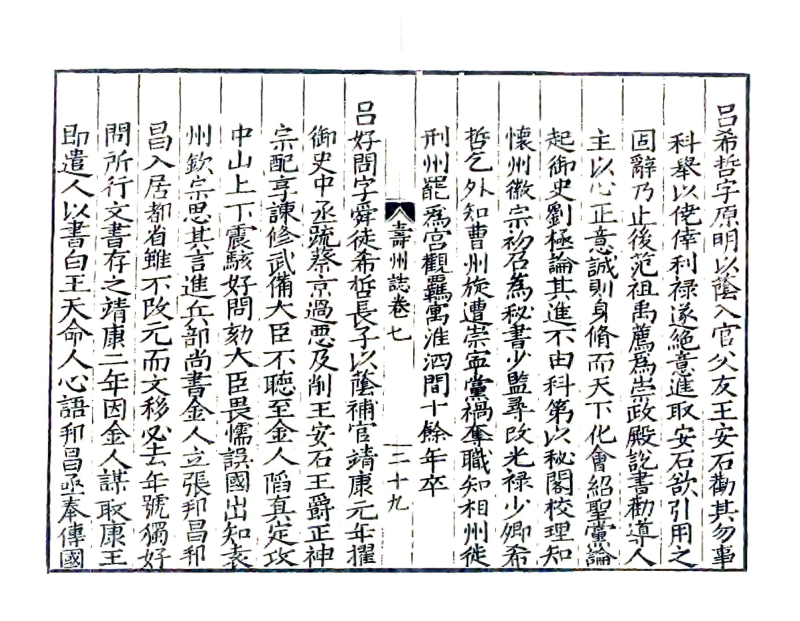 呂希哲字原明以蔭入官父友王安石勸其勿事
科舉以僥倖利祿遂絕意進取安石欲引用之
固辭乃止後范祖禹薦為崇政殿說書勸導人
主以心正意誠則身脩而天下化會紹聖黨論
起御史劉極論其進不由科第以秘閣校理知
懷州徽宗初召為秘書少監尋改光祿少卿希
哲乞外知曹州旋遭崇寍黨禍奪職知相州徙
刑州罷為宮觀羈寓淮泗間十餘年卒
壽州誌卷七 二十九
呂好問字舜徒希哲長子以蔭補官靖康元年擢
御史中丞疏蔡京過惡及削王安石王爵正神
宗配享諫修武備大臣不聽至金人陷真定攻
中山上下震駭好問劾大臣畏懦誤國出知袁
州欽宗思其言進兵部尚書金人立張邦昌邦
昌入居都省雖不改元而文移必去年號獨好
問所行文書存之靖康二年因金人謀取康王
即遣人以書白王天命人心語邦昌亟奉傳國